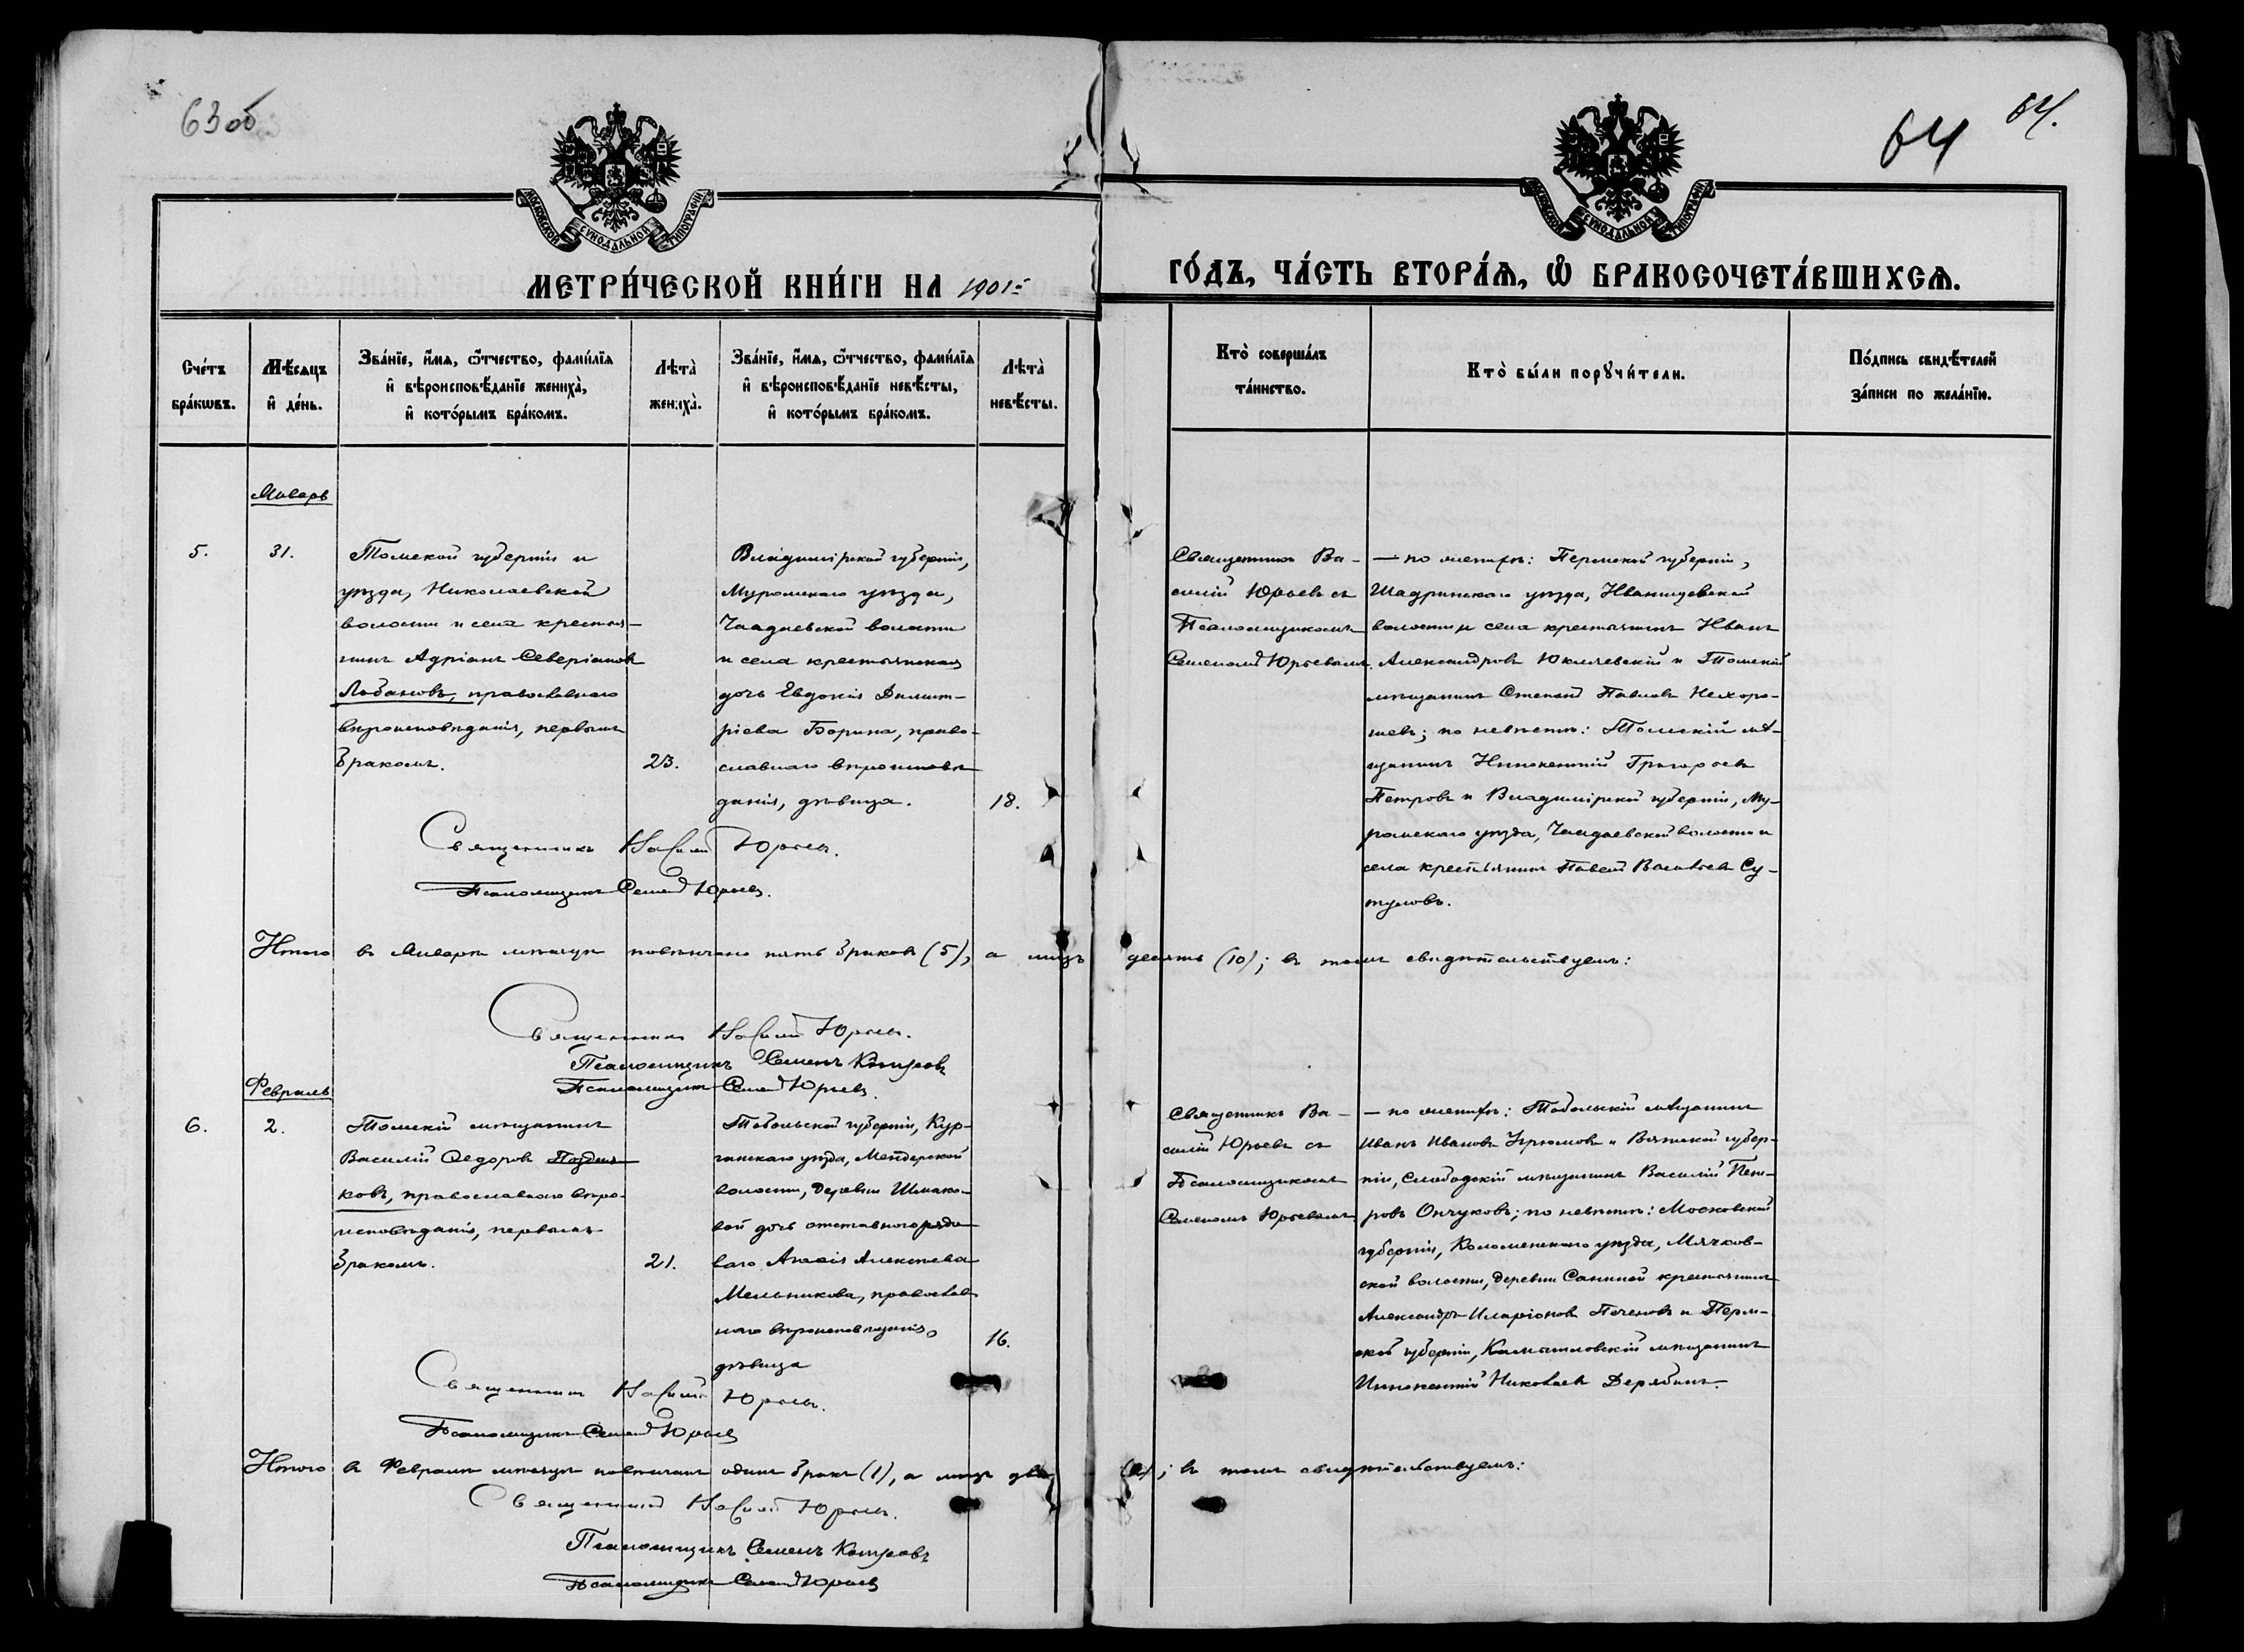 63 об
64
64.
МОСКОВСКОЙ СѴНОДАЛЬНОЙ ТИПОГРАФИИ
МОСКОВСКОЙ СѴНОДАЛЬНОЙ ТИПОГРАФИИ
МЕТРИ́ЧЕСКОЙ КНИ́ГИ НА 1901й
ГО́ДЪ, ЧА́СТЬ ВТОРА́Ѧ, Ѽ БРАКОСОЧЕТА́ВШИХСѦ.
Сче́тъ
бра́кѡвъ.
Мѣ́сяцъ
и҆ де́нь.
Зва́нїе, и҆́мѧ, ѻ҆́тчество, фами́лїѧ
и҆ вѣроисповѣ́данїе жениха̀,
и҆ кото́рымъ бра́комъ.
Лѣта̀
жениха̀.
Зва́нїе, и҆́мѧ, ѻ҆́тчество, фами́лїѧ
и҆ вѣроисповѣ́данїе невѣ́сты,
и҆ кото́рымъ бра́комъ.
Лѣта̀
невѣ́сты.
Кто̀ соверша́лъ
та́инство.
Кто̀ бы́ли порꙋчи́тели.
По́дпись свидѣ́телей
за́писи по жела́нїю.
Январь
5.
31.
Томской губерніи и
уѣзда, Николаевской
волости и села крестья-
нинъ Адріанъ Северіановъ
Лобановъ, православнаго
вѣроисповѣданія, первымъ
бракомъ.
23.
Владимірской губерніи,
Муромскаго уѣзда,
Чаадаевской волости
и села крестьянская
дочь Евдокія Димит-
ріева Борина, право-
славнаго вѣроисповѣ
данія, дѣвица.
18.
Священникъ Ва-
силій Юрьевъ съ
Псаломщикомъ
Семеномъ Юрьевымъ.
— по женихѣ: Пермской губерніи,
Шадринскаго уѣзда, Иванищевской
волости и села крестьянинъ Иванъ
Александровъ Юкляевскій и Томскій
мѣщанинъ Степанъ Павловъ Нехоро-
шевъ; по невѣстѣ: Томскій мѣ-
щанинъ Иннокентій Григорьевъ
Петровъ и Владимірской губерніи, Му-
ромскаго уѣзда, Чаадаевской волости и
села крестьянинъ Павелъ Васильевъ Су-
туловъ.
Священникъ Василій Юрьевъ.
Псаломщикъ Семенъ Юрьевъ.
Итого въ Январѣ мѣсяцѣ повѣнчано пять браковъ (5), а лицъ десять (10); въ томъ свидѣтельствуемъ:
Священникъ Василій Юрьевъ.
Псаломщикъ Семенъ
Псаломщикъ Семенъ Юрьевъ.
Февраль
6.
2.
Томскій мѣщанинъ
Василій Ѳедоровъ Поздня-
ковъ, православнаго вѣро-
исповѣданія, первымъ
бракомъ.
21.
Тобольской губерніи, Кур-
ганскаго уѣзда, Мендерской
волости, деревни Шмако-
вой дочь отставного рядо
ваго Алексѣева
Мельникова, православ
наго вѣроисповѣданія,
дѣвица
16.
Священникъ Ва-
силій Юрьевъ съ
Псаломщикомъ
Семеномъ Юрьевымъ.
— по женихѣ: Тобольскій мѣщанинъ
Иванъ Ивановъ Угрюмовъ и Вятской губер-
ніи, Слободскій мѣщанинъ Василій Пет-
ровъ Ончуковъ; по невѣстѣ: Московской
губерніи, Коломенскаго уѣзда, Мячков-
ской волости, деревни Саниной крестьянинъ
Александръ Иларіоновъ Печеновъ и Перм-
ской губерніи, Камышловскій мѣщанинъ
Иннокентій Николаевъ Дерябинъ.
Священникъ Василій Юрьевъ.
Псаломщикъ Семенъ Юрьевъ
Итого въ Февралѣ мѣсяцѣ повѣнчанъ одинъ бракъ (1), а лицъ два (2); въ томъ свидѣтельствуемъ:
Священникъ Василій Юрьевъ.
Псаломщикъ Семенъ
Псаломщикъ Семенъ Юрьевъ